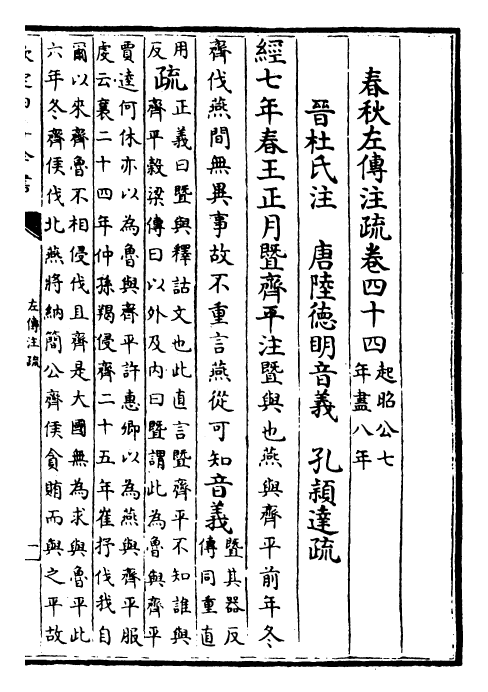 春秋左傳注疏卷四十四
起昭公七
年盡八年
晉杜氏注 唐陸德明音義 孔穎達疏
經七年春王正月暨齊平注暨與也燕與齊平前年冬
齊伐燕間無異事故不重言燕從可知音義
暨其器反
傳同重直
用
反
疏
正義曰暨與釋詁文也此直言暨齊平不知誰與
齊平穀梁傳曰以外及內曰暨謂此為魯與齊平
賈逵何休亦以為魯與齊平許惠卿以為燕與齊平服
虔云襄二十四年仲孫羯侵齊二十五年崔杼伐我自
爾以來齊魯不相侵伐且齊是大國無為求與魯平此
六年冬齊侯伐北燕將納簡公齊侯貪賄而與之平故
左傳注疏
一